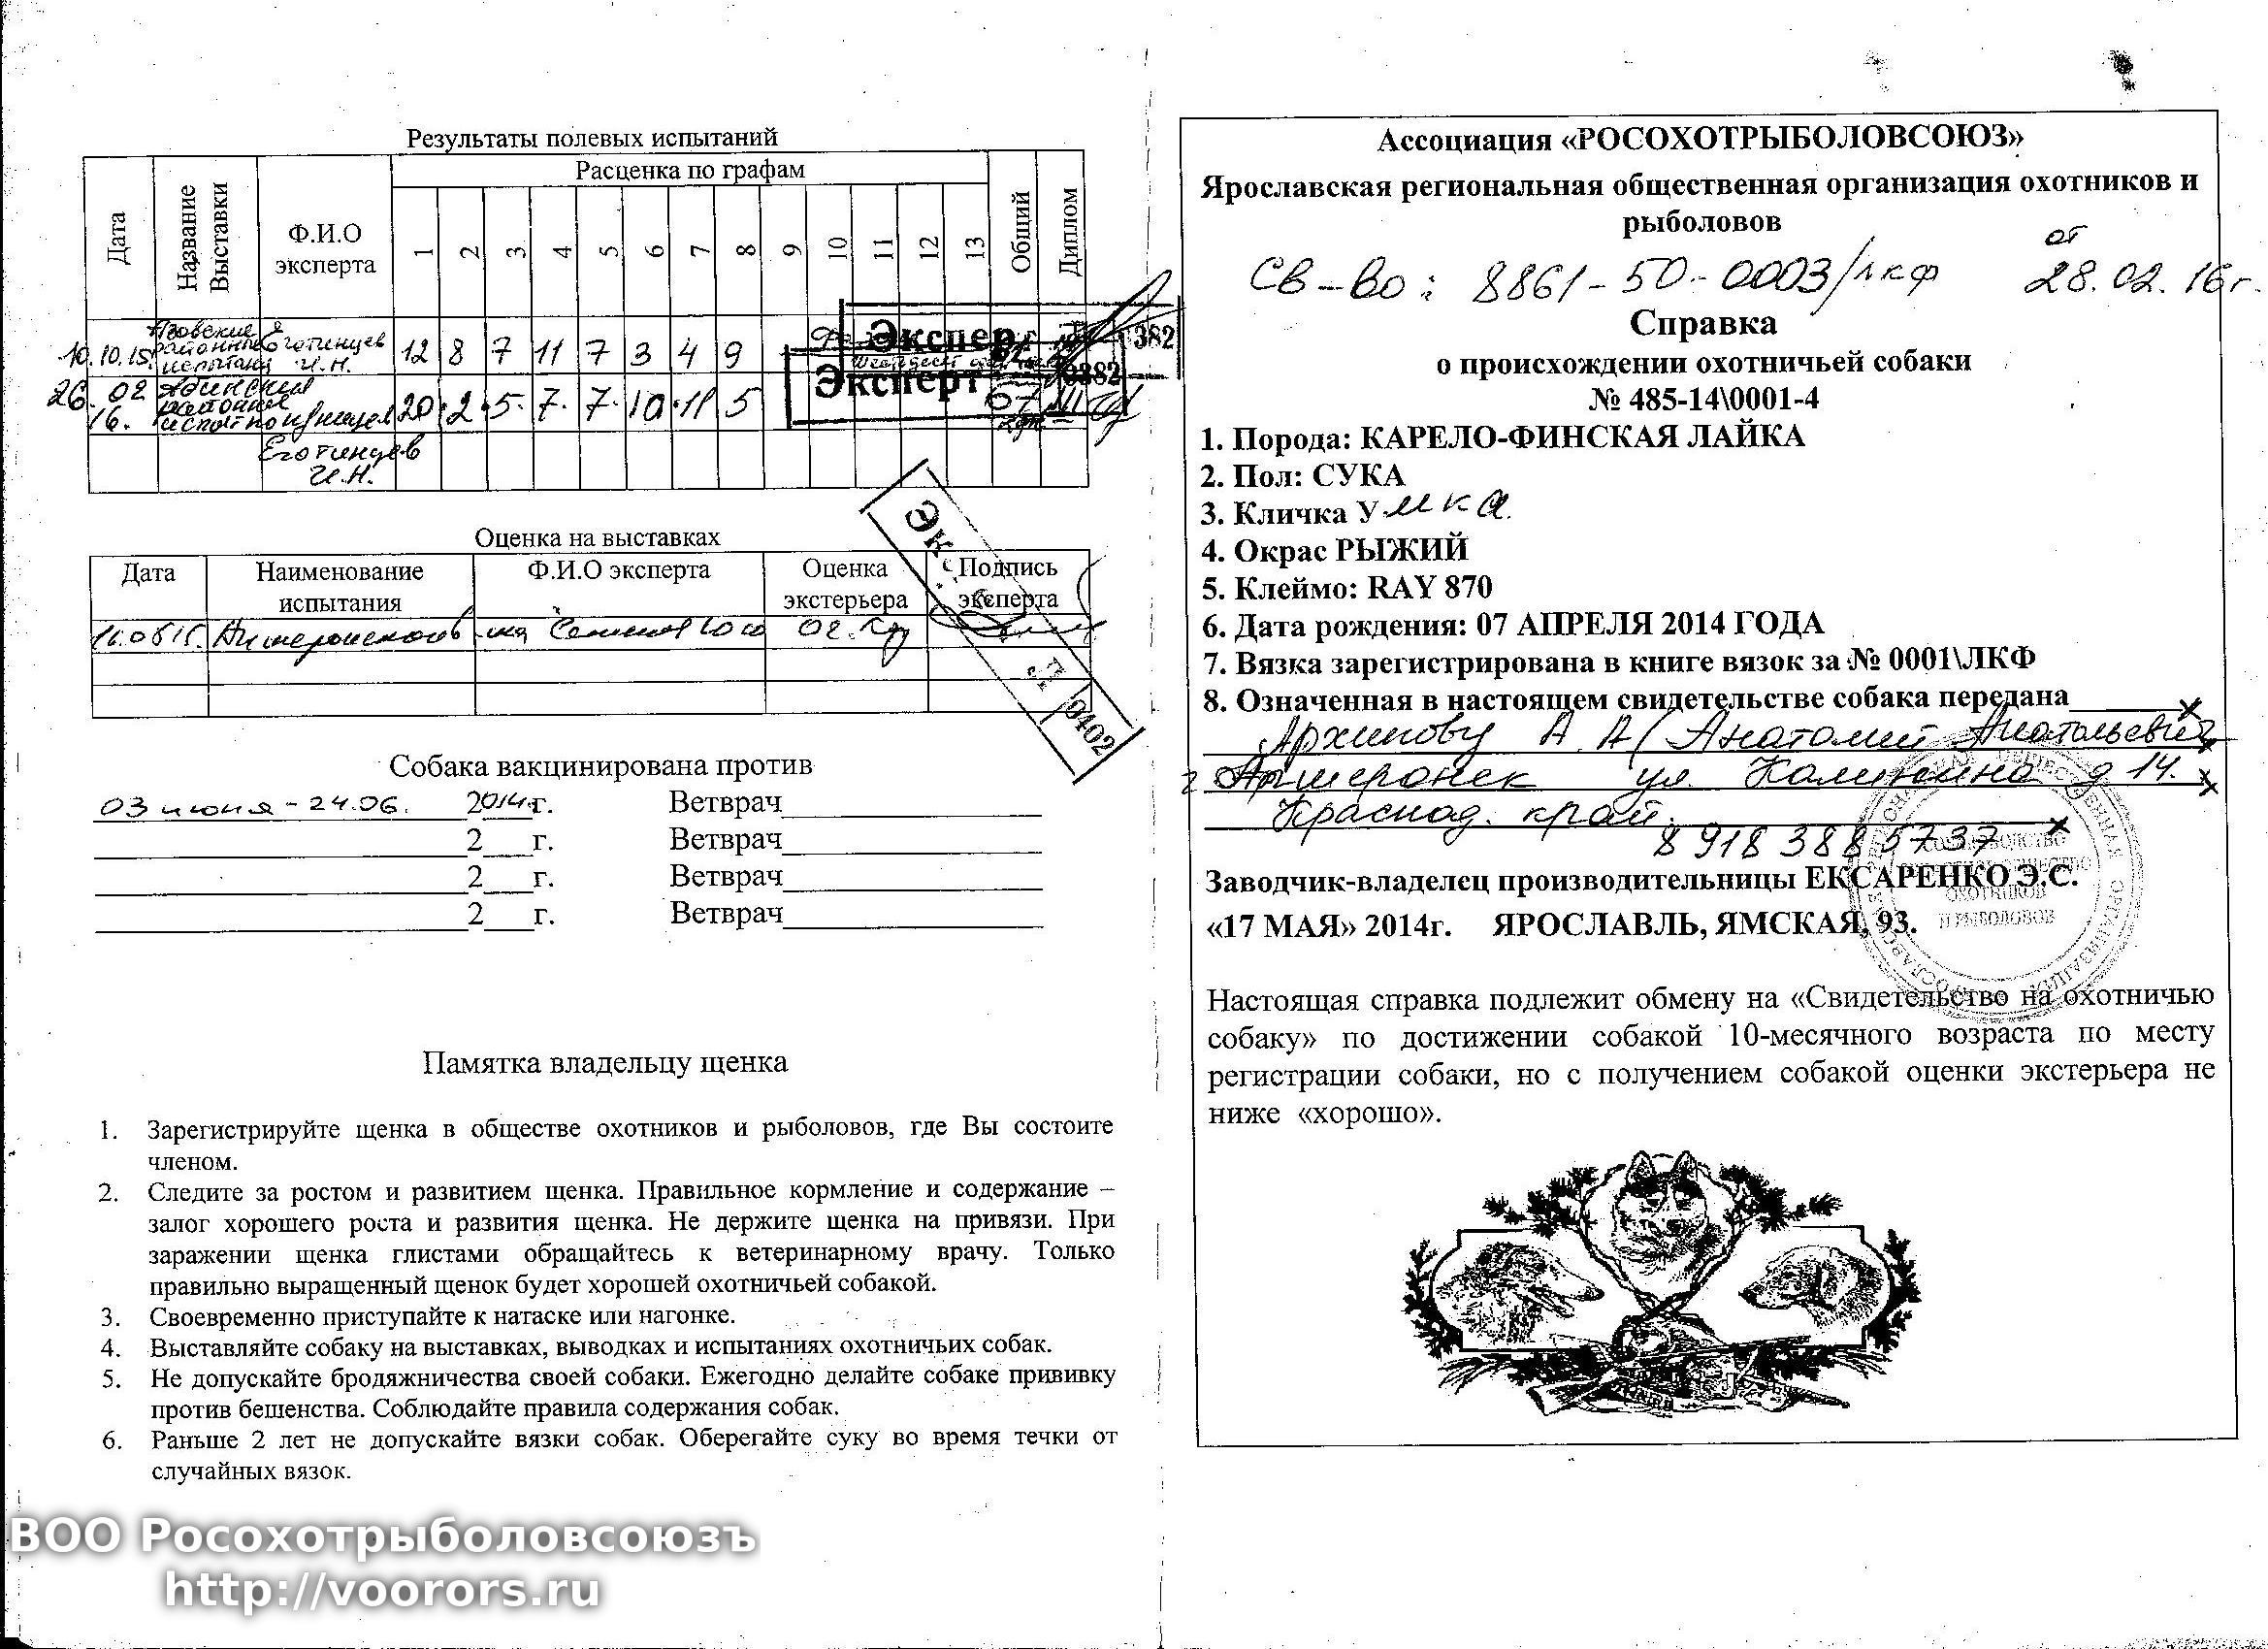 Результаты полевых испытаний
Дата
Название Выставки
Ф.И.О эксперта
Расценка по графам
1 2 3 4 5 6 7 8 9 10 11 12 13
Общий
Диплом
10.10.15. районные испытания Еготинцев И.Н. 12 8 7 11 7 3 4 9
Эксперт 0382
26.02 16. 20 2 5 7 7 10 11 5 67
Эксперт 0382
Еготинцев
И.Н.
Оценка на выставках
Дата
Наименование испытания
Ф.И.О эксперта
Оценка экстерьера
Подпись эксперта
0402
Собака вакцинирована против
03 июня - 24.06. 2014г. Ветврач
2 г. Ветврач
2 г. Ветврач
2 г. Ветврач
Памятка владельцу щенка
1. Зарегистрируйте щенка в обществе охотников и рыболовов, где Вы состоите
членом.
2. Следите за ростом и развитием щенка. Правильное кормление и содержание –
залог хорошего роста и развития щенка. Не держите щенка на привязи. При
заражении щенка глистами обращайтесь к ветеринарному врачу. Только
правильно выращенный щенок будет хорошей охотничьей собакой.
3. Своевременно приступайте к натаске или нагонке.
4. Выставляйте собаку на выставках, выводках и испытаниях охотничьих собак.
5. Не допускайте бродяжничества своей собаки. Ежегодно делайте собаке прививку
против бешенства. Соблюдайте правила содержания собак.
6. Раньше 2 лет не допускайте вязки собак. Оберегайте суку во время течки от
случайных вязок.
ВОО Росохотрыболовсоюзъ
http://voorors.ru
Ассоциация «РОСОХОТРЫБОЛОВСОЮЗ»
Ярославская региональная общественная организация охотников и
рыболовов
от
Св-во: 8861-50-0003/лкф 28.02.16г.
Справка
о происхождении охотничьей собаки
№ 485-14\0001-4
1. Порода: КАРЕЛО-ФИНСКАЯ ЛАЙКА
2. Пол: СУКА
3. Кличка Умка.
4. Окрас РЫЖИЙ
5. Клеймо: RAY 870
6. Дата рождения: 07 АПРЕЛЯ 2014 ГОДА
7. Вязка зарегистрирована в книге вязок за № 0001\ЛКФ
8. Означенная в настоящем свидетельстве собака передана
Архипову А.А (Анатолий Анатольевич
г Апшеронск ул. Калинина д 14.
Краснод. край.
8 918 3885737
Заводчик-владелец производительницы ЕКСАРЕНКО Э.С.
«17 МАЯ» 2014г. ЯРОСЛАВЛЬ, ЯМСКАЯ, 93.
Настоящая справка подлежит обмену на «Свидетельство на охотничью
собаку» по достижении собакой 10-месячного возраста по месту
регистрации собаки, но с получением собакой оценки экстерьера не
ниже «хорошо».